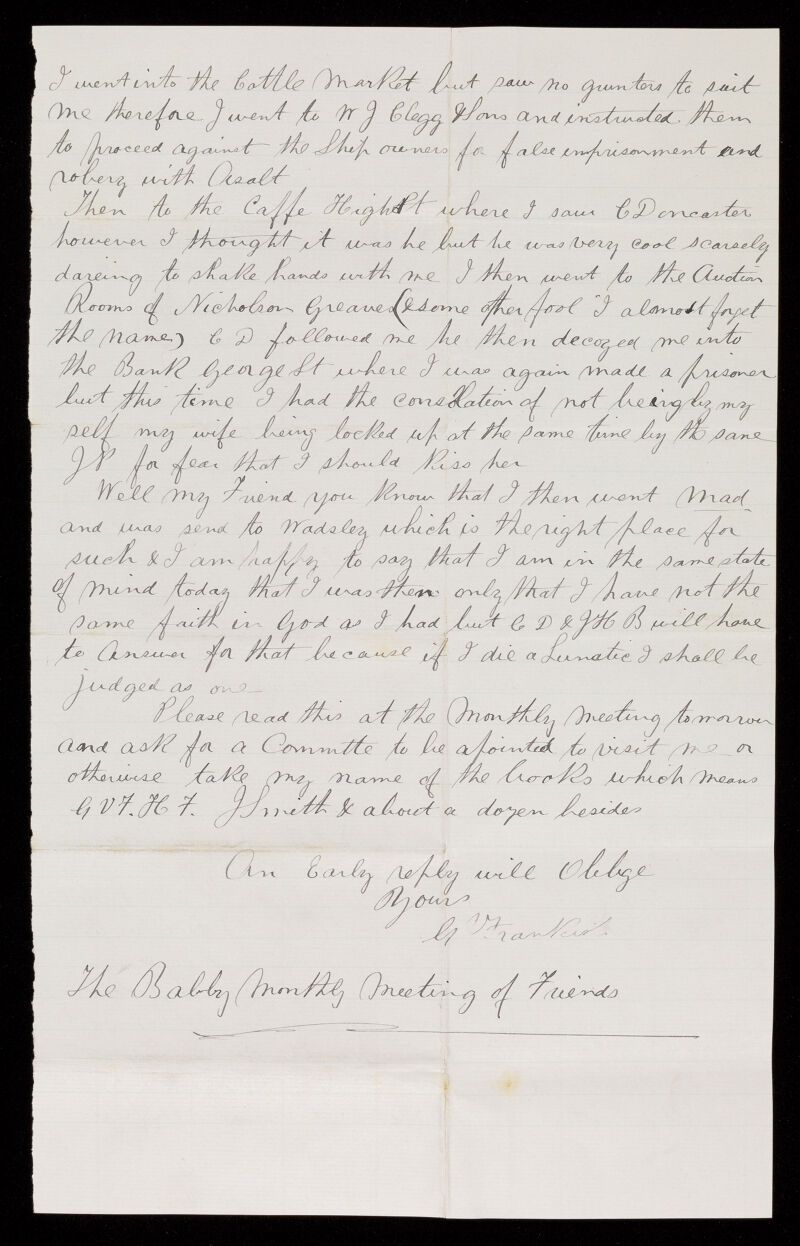 I went into the Cattle Market but saw no grunters to suit
me therefore I went to W J Clegg & Sons and instructed them
to proceed against the Ship owners for false imprisonment and
robery with Asalt
Then to the Caffe High St where I saw C Doncaster
however I thought it was he but he was very cool scarsely
dareing to shake hands with me I then went to the Auction
Rooms of Nicholson Greaves (& some other fool I almost forget
the name) C D followed me he then decoyed me into
the Bank George St where I was again made a prisoner
but this time I had the consolation of not being by my
self my wife being locked up at the same time by the same
J P for fear that I should kiss her
Well my Friend you know that I then went mad
and was send to Wadsley which is the right place for
such & I am happy to say that I am in the same state
of mind today that I was then only that I have not the
same faith in God as I had but C D & J H B will have
to answer for that because if I die a Lunatic I shall be
judged as one
Please read this at the Monthly Meeting tomorrow
and ask for a Committe to be apointed to visit me or
otherwise take my name of the books which means
G V F. H F. J Smith & about a dozen besides
An Early reply will Oblige
Yours
G V Frankish
The Balby Monthly Meeting of Friends